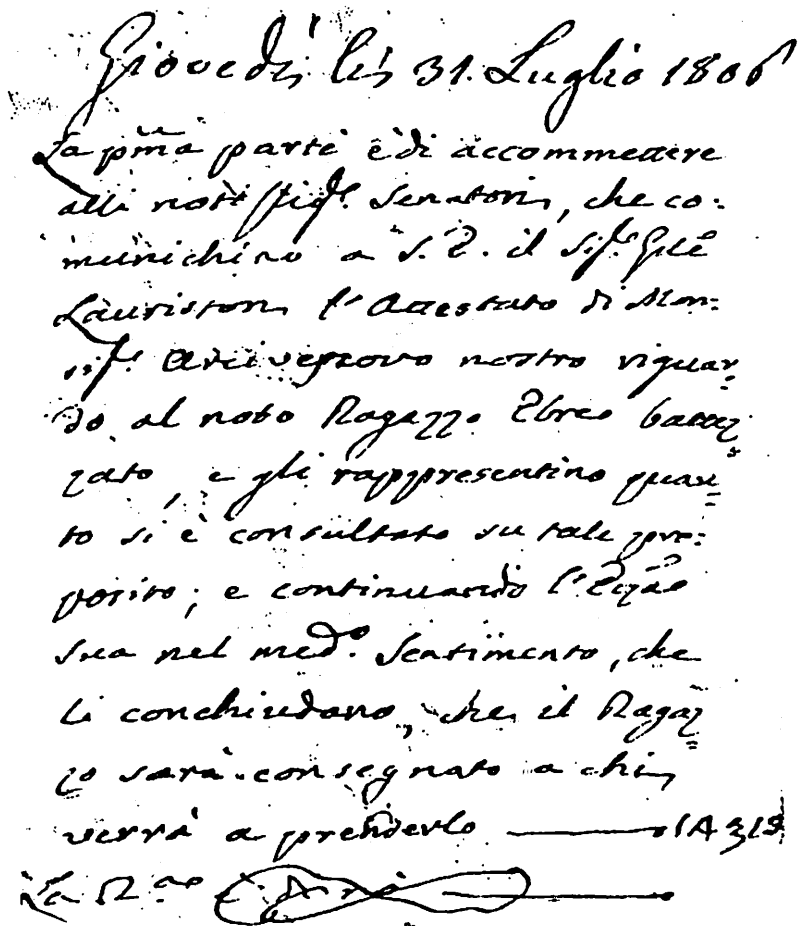 Giovedì lì 31. Luglio 1806
La pma parte è di accommettere
alli nostri Sigri. Senatori, che co:
munichino a S. E. il Sigr. Gnle
Lauriston l'Attestato di Mon:
sigr. Arcivescovo nostro riguar=
do al noto Ragazzo Ebreo battez=
zato, e gli rappresentino quan=
to si è consultato su tale pro:
posito; e continuando l'Eccza
Sua nel medo. Sentimento, che
li conchiudano, che il Ragaz=
zo sarà consegnato a chi
verrà a prenderlo
La